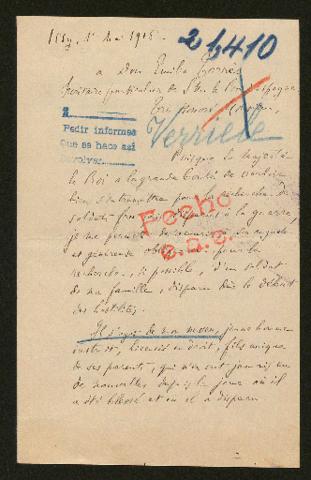 1er Mai 1916
26410
a Don Emilio Torres
Secrétaire particulier de S. M. le Roi d'Espagne
Très honoré
Verrielle
2
Pedir informes
Que se hace así
Devolver
Puisque Sa Majesté
le Roi a la grande bonté de vouloir
bien s'entremettre pour la recherche des
soldats français disparus à la guerre,
je me permets de recourir à Son auguste
et généreuse pour la
recherche, si possible, d'un soldat
de ma famille, disparu dès le début
des hostilités.
Fecho
Il s'agit de mon neveu, jeune homme
instruit, licencié en droit, fils unique
de ses parents, qui n'en ont jamais eu
de nouvelles depuis le jour où il
a été blessé et où il a disparu